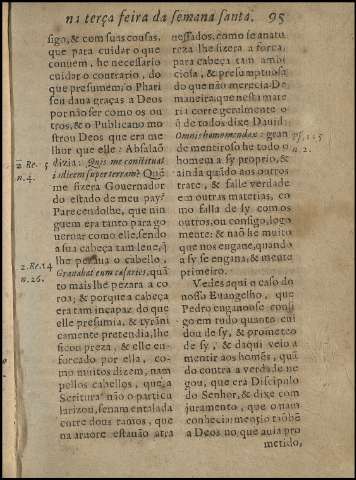 na terça feira da semana santa. 95
sigo, & com suas cousas,
que para cuidar o que
conuem, he necessario
cuidar o contrario, do
que presumem; o Phari
seu daua graças a Deos
por não ser como os ou
tros, & o Publicano mo
strou Deos que era me
lhor que elle: Absalaõ
dizia: Quis me constituat
iudicem super terram? Quē
me fizera Gouernador
do estado de meu pay?
Parecendolhe, que nin
guem era tanto para go
uernar como elle, sendo
a sua cabeça tam leue, q̃
lhe pesaua o cabello,
Grauabat eum cæsaries, quã
to mais lhe pezara a co
roa; & porque a cabeça
era tam incapaz do que
elle presumia, & tyrãni
camente pretendia, lhe
ficou preza, & elle en-
forcado por ella, co-
mo muitos dizem, nam
pellos cabellos, que a
Scritura não o particu
larizou, senam entalada
entre dous ramos, que
na aruore estauão atra
2. Re. 15
n. 4.
2. Re. 14
n. 26.
uessados, como se a natu
reza lhe fizera a forca,
para cabeça tam ambi
ciosa, & presumptuosa
do que não merecia. De
maneira que nesta mate
ria corre geralmente o
q̃ de todos dixe Dauid:
Omnis homo mendax: gran
de mentiroso he todo o
homem a sy proprio, &
ainda quãdo aos outros
trate, & falle verdade
em outras materias, co
mo falla de sy com os
outros, ou consigo, logo
mente: & não he muito
que nos engane, quando
a sy se engana, & mente
primeiro.
Vedes aqui o caso do
nosso Euangelho, que
Pedro enganouse consi
go em tudo quanto cui
dou de sy, & prometeo
de sy, & daqui veio a
mentir aos homẽs, quã
do contra a verdade ne
gou, que era Discipulo
do Senhor, & dixe com
juramento, que o nam
conhecia: mentio taõbẽ
a Deos no que auia pro
metido,
Ps. 115
n. 2.